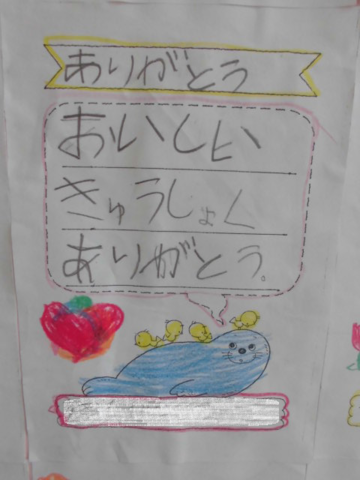 ありがとう
おいしい
きゅうしょく
ありがとう。